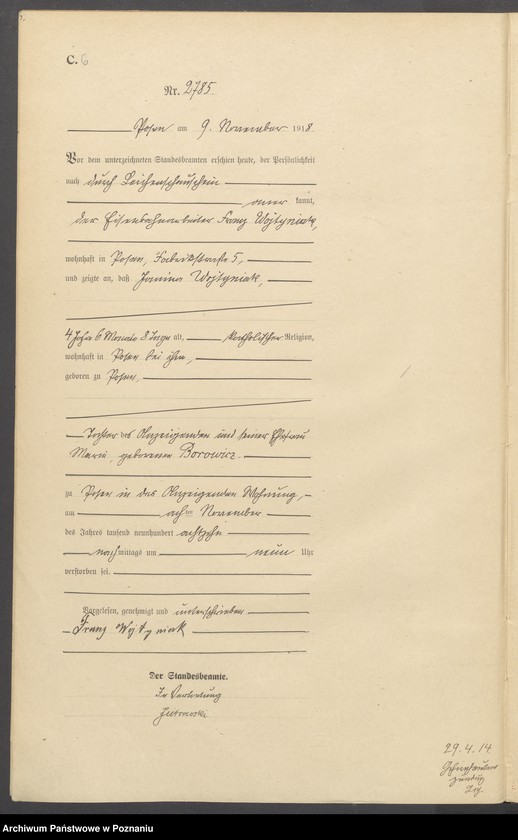 C. 6
Nr. 2785.
Posen am 9. November 1918.
Vor dem unterzeichneten Standesbeamten erschien heute, der Persönlichkeit
nach durch Leichenschauschein
aner kannt,
der Eisenbahnarbeiter Franz Wojtyniak,
wohnhaft in Posen, 5,
und zeigte an, daß Janina Wojtyniak,
4 Jahre 6 Monate 8 Tage alt, katholischer Religion,
wohnhaft in Posen bei ihm,
geboren zu Posen,
Tochter des Anzeigenden und seiner Ehefrau
Marie, geborenen Borowicz.
zu Posen in des Anzeigenden Wohnung,
am achten November
des Jahres tausend neunhundert achtzehn
nachmittags um neun Uhr
verstorben sei.
Vorgelesen, genehmigt und unterschrieben
Franz
Der Standesbeamte.
In Vertretung
29. 4. 14
Archiwum Państwowe w Poznaniu